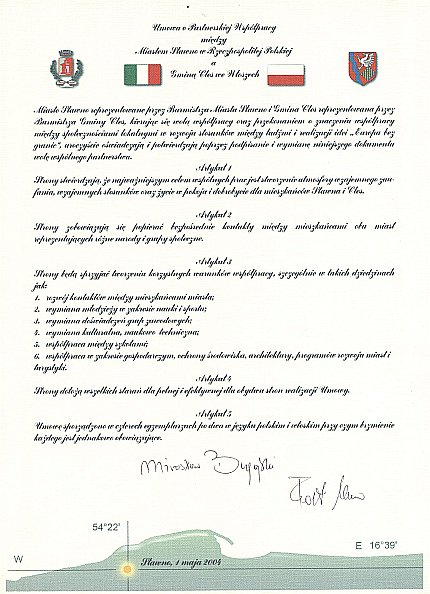 Umowa o Partnerskiej Współpracy
między
Miastem Sławno w Rzeczpospolitej Polskiej
a
Gminą Cles we Włoszech
Miasto Sławno reprezentowane przez Burmistrza Miasta Sławno i Gmina Cles reprezentowana przez
Burmistrza Gminy Cles, kierując się wolą współpracy oraz przekonaniem o znaczeniu współpracy
między społecznościami lokalnymi w rozwoju stosunków między ludźmi i realizacji idei „Europa bez
granic”, uroczyście oświadczają i potwierdzają poprzez podpisanie i wymianę niniejszego dokumentu
wolę wspólnego partnerstwa.
Artykuł 1
Strony stwierdzają, że najważniejszym celem wspólnych prac jest stworzenie atmosfery wzajemnego zau-
fania, wzajemnych stosunków oraz życie w pokoju i dobrobycie dla mieszkańców Sławna i Cles.
Artykuł 2
Strony zobowiązują się popierać bezpośrednie kontakty między mieszkańcami obu miast
reprezentujących różne narody i grupy społeczne.
Artykuł 3
Strony będą sprzyjać tworzeniu korzystnych warunków współpracy, szczególnie w takich dziedzinach
jak:
1. rozwój kontaktów między mieszkańcami miasta;
2. wymiana młodzieży w zakresie nauki i sportu;
3. wymiana doświadczeń grup zawodowych;
4. wymiana kulturalna, naukowo techniczna;
5. współpraca między szkołami;
6. współpraca w zakresie gospodarczym, ochrony środowiska, architektury, programów rozwoju miast i
turystyki.
Artykuł 4
Strony dołożą wszelkich starań dla pełnej i efektywnej dla obydwu stron realizacji Umowy.
Artykuł 5
Umowę sporządzono w czterech egzemplarzach po dwa w języku polskim i włoskim przy czym brzmienie
każdego jest jednakowo obowiązujące.
Mirosław
54°22'
E 16°39'
W
Sławno, 1 maja 2004